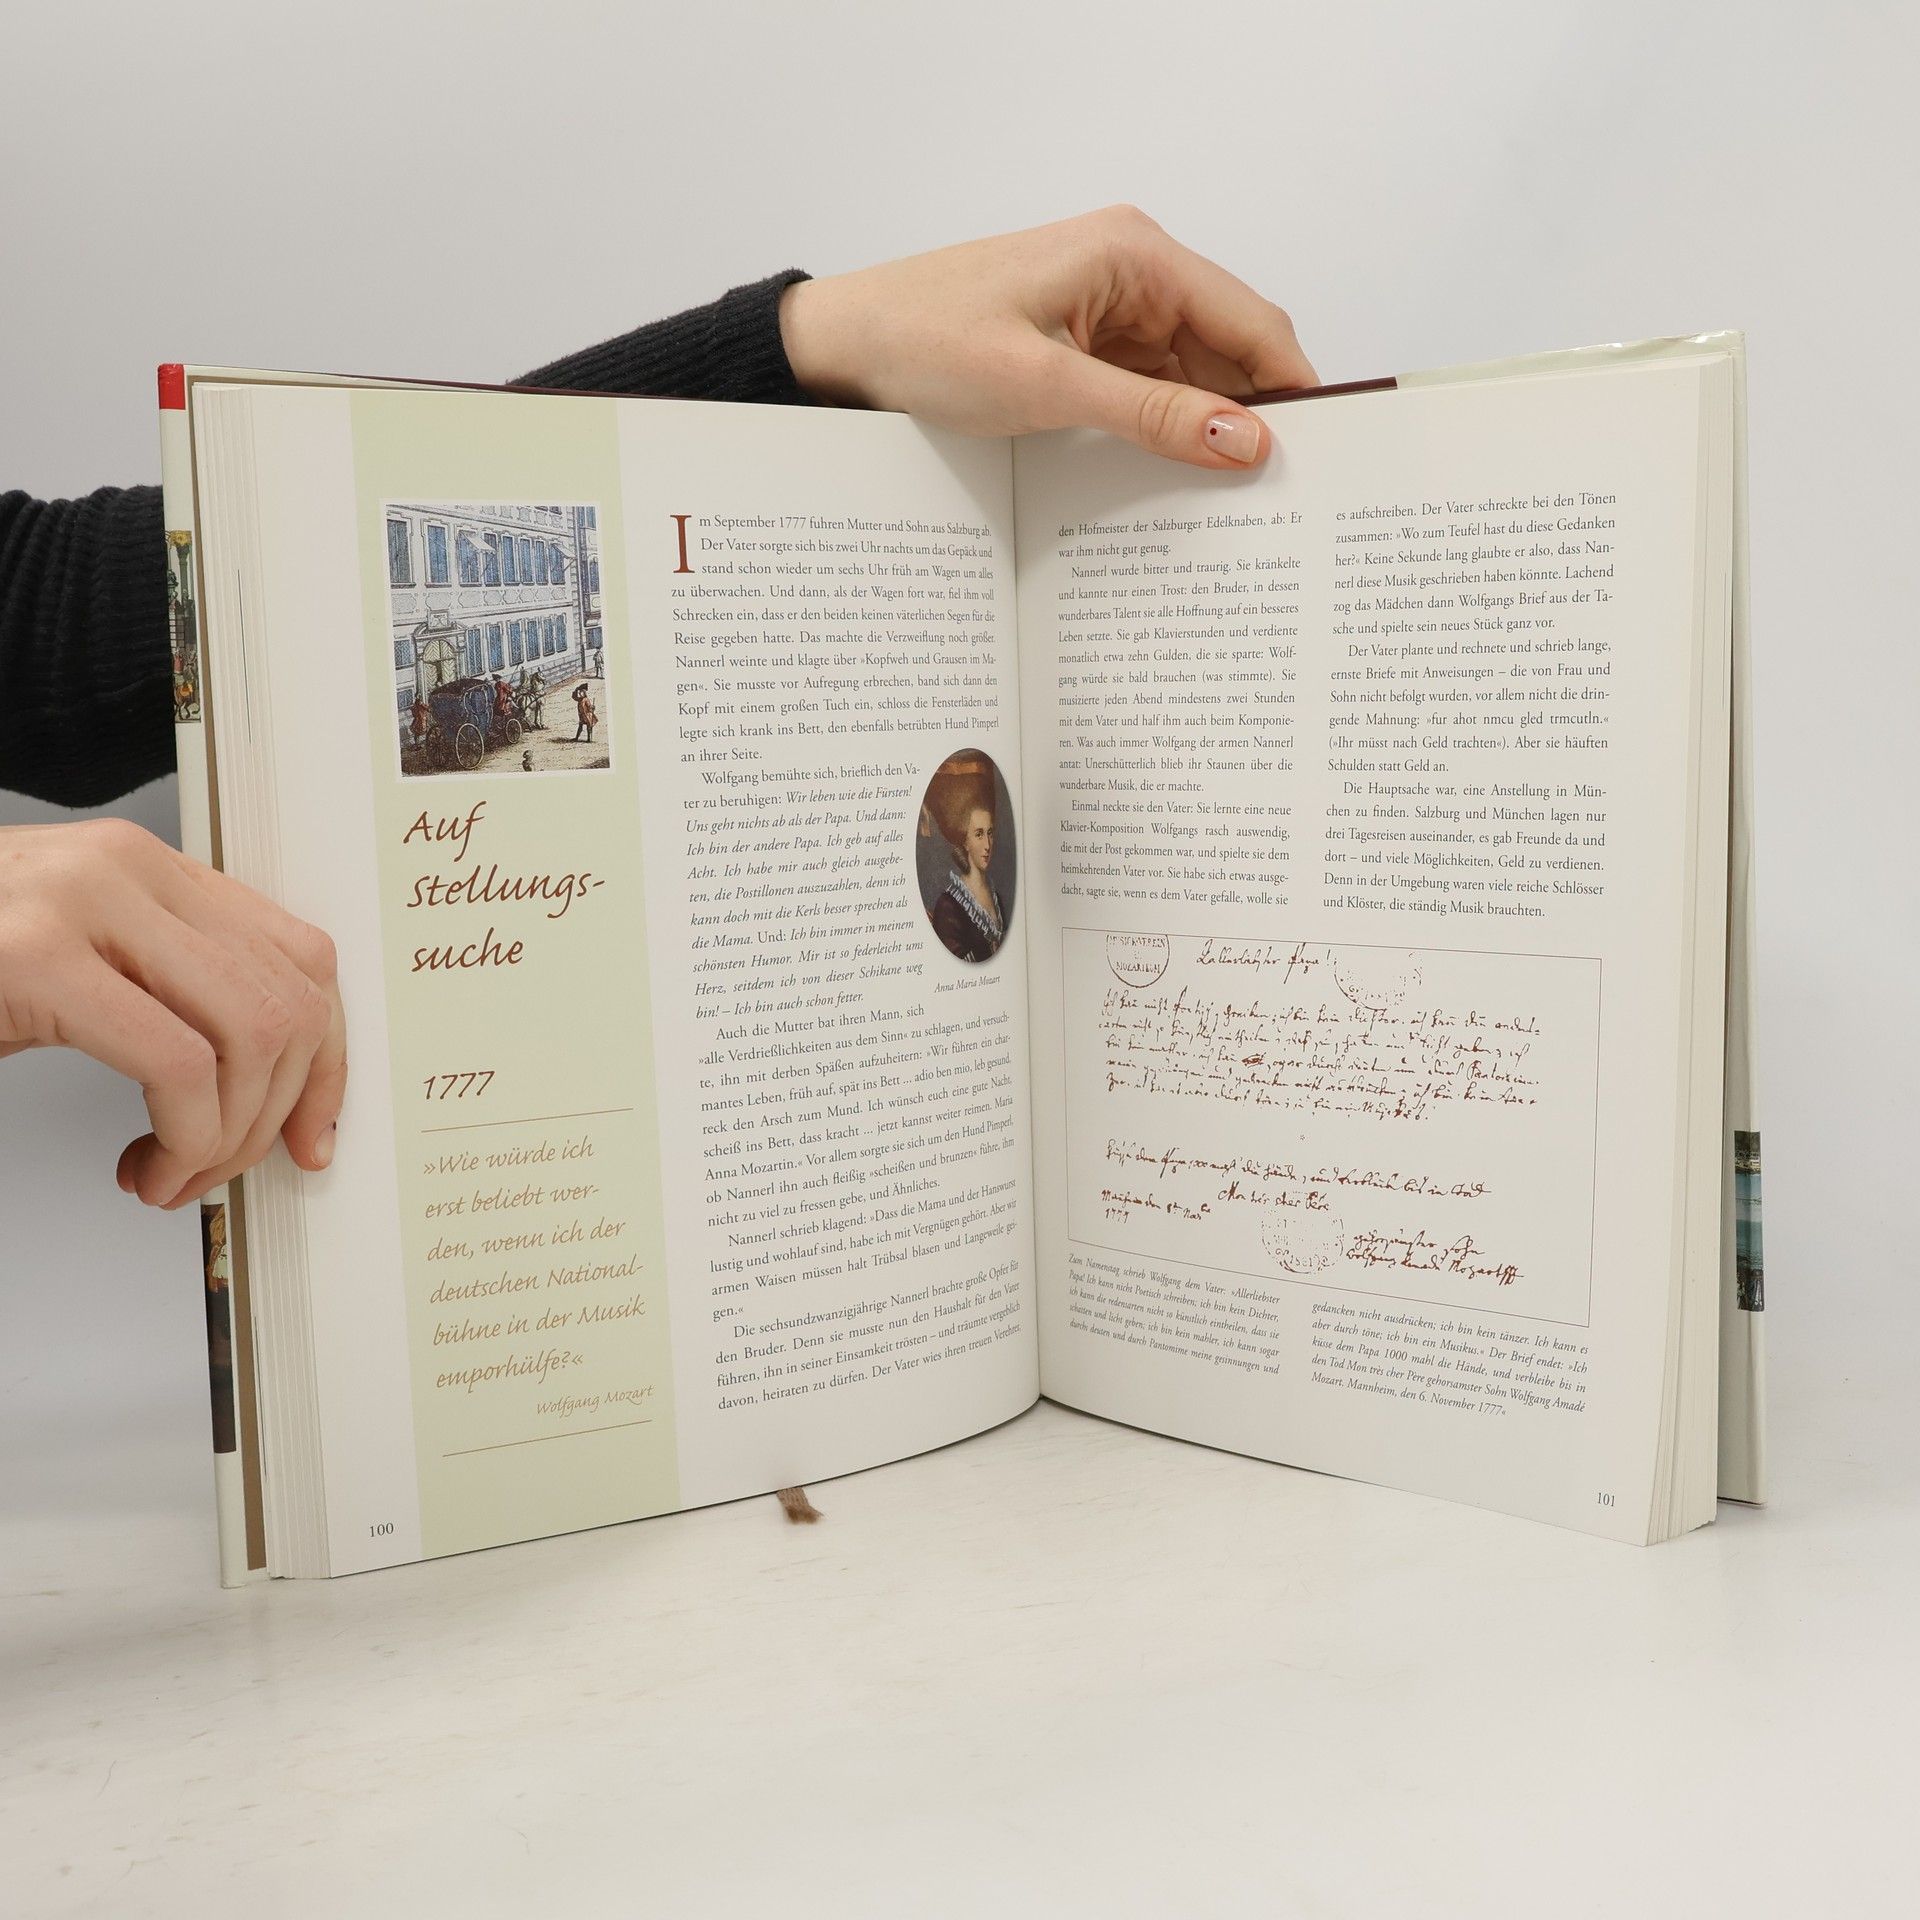 Auf
Stellungs-
suche
1777
»Wie würde ich
erst beliebt wer-
den, wenn ich der
deutschen National-
bühne in der Musik
emporhülfe?«
Wolfgang Mozart
100
Im September 1777 fuhren Mutter und Sohn aus Salzburg ab.
Der Vater sorgte sich bis zwei Uhr nachts um das Gepäck und
stand schon wieder um sechs Uhr früh am Wagen um alles
zu überwachen. Und dann, als der Wagen fort war, fiel ihm voll
Schrecken ein, dass er den beiden keinen väterlichen Segen für die
Reise gegeben hatte. Das machte die Verzweiflung noch größer.
Nannerl weinte und klagte über »Kopfweh und Grausen im Ma-
gen«. Sie musste vor Aufregung erbrechen, band sich dann den
Kopf mit einem großen Tuch ein, schloss die Fensterläden und
legte sich krank ins Bett, den ebenfalls betrübten Hund Pimperl
an ihrer Seite.
Wolfgang bemühte sich, brieflich den Va-
ter zu beruhigen: Wir leben wie die Fürsten!
Uns geht nichts ab als der Papa. Und dann:
Ich bin der andere Papa. Ich geb auf alles
Acht. Ich habe mir auch gleich ausgebe-
ten, die Postillonen auszuzahlen, denn ich
kann doch mit die Kerls besser sprechen als
die Mama. Und: Ich bin immer in meinem
schönsten Humor. Mir ist so federleicht ums
Herz, seitdem ich von dieser Schikane weg
bin! – Ich bin auch schon fetter.
Anna Maria Mozart
Auch die Mutter bat ihren Mann, sich
»alle Verdrießlichkeiten aus dem Sinn« zu schlagen, und versuch-
te, ihn mit derben Späßen aufzuheitern: »Wir führen ein char-
mantes Leben, früh auf, spät ins Bett ... adio ben mio, leb gesund,
reck den Arsch zum Mund. Ich wünsch euch eine gute Nacht,
scheiß ins Bett, dass kracht ... jetzt kannst weiter reimen. Maria
Anna Mozartin.« Vor allem sorgte sie sich um den Hund Pimperl,
ob Nannerl ihn auch fleißig »scheißen und brunzen« führe, ihm
nicht zu viel zu fressen gebe, und Ähnliches.
Nannerl schrieb klagend: »Dass die Mama und der Hanswurst
lustig und wohlauf sind, habe ich mit Vergnügen gehört. Aber wir
armen Waisen müssen halt Trübsal blasen und Langeweile gei-
gen.«
Die sechsundzwanzigjährige Nannerl brachte große Opfer für
den Bruder. Denn sie musste nun den Haushalt für den Vater
führen, ihn in seiner Einsamkeit trösten – und träumte vergeblich
davon, heiraten zu dürfen. Der Vater wies ihren treuen Verehrer,
den Hofmeister der Salzburger Edelknaben, ab: Er
war ihm nicht gut genug.
Nannerl wurde bitter und traurig. Sie kränkelte
und kannte nur einen Trost: den Bruder, in dessen
wunderbares Talent sie alle Hoffnung auf ein besseres
Leben setzte. Sie gab Klavierstunden und verdiente
monatlich etwa zehn Gulden, die sie sparte: Wolf-
gang würde sie bald brauchen (was stimmte). Sie
musizierte jeden Abend mindestens zwei Stunden
mit dem Vater und half ihm auch beim Komponie-
ren. Was auch immer Wolfgang der armen Nannerl
antat: Unerschütterlich blieb ihr Staunen über die
wunderbare Musik, die er machte.
Einmal neckte sie den Vater: Sie lernte eine neue
Klavier-Komposition Wolfgangs rasch auswendig,
die mit der Post gekommen war, und spielte sie dem
heimkehrenden Vater vor. Sie habe sich etwas ausge-
dacht, sagte sie, wenn es dem Vater gefalle, wolle sie
es aufschreiben. Der Vater schreckte bei den Tönen
zusammen: »Wo zum Teufel hast du diese Gedanken
her?« Keine Sekunde lang glaubte er also, dass Nan-
nerl diese Musik geschrieben haben könnte. Lachend
zog das Mädchen dann Wolfgangs Brief aus der Ta-
sche und spielte sein neues Stück ganz vor.
Der Vater plante und rechnete und schrieb lange,
ernste Briefe mit Anweisungen – die von Frau und
Sohn nicht befolgt wurden, vor allem nicht die drin-
gende Mahnung: »fur ahot nmcu gled trmcutln.«
(»Ihr müsst nach Geld trachten«). Aber sie häuften
Schulden statt Geld an.
Die Hauptsache war, eine Anstellung in Mün-
chen zu finden. Salzburg und München lagen nur
drei Tagesreisen auseinander, es gab Freunde da und
dort – und viele Möglichkeiten, Geld zu verdienen.
Denn in der Umgebung waren viele reiche Schlösser
und Klöster, die ständig Musik brauchten.
MOZARTEUM
Allerliebster Papa!
Mon très cher Père
1777
1881
gehorsamster Sohn
Wolfgang Amadé Mozart
Zum Namenstag schrieb Wolfgang dem Vater: »Allerliebster
Papa! Ich kann nicht Poetisch schreiben; ich bin kein Dichter,
ich kann die redensarten nicht so künstlich eintheilen, dass sie
schatten und licht geben; ich bin kein mahler, ich kann sogar
durchs deuten und durch Pantomime meine gesinnungen und
gedancken nicht ausdrücken; ich bin kein tänzer. Ich kann es
aber durch töne; ich bin ein Musikus.« Der Brief endet: »Ich
küsse dem Papa 1000 mahl die Hände, und verbleibe bis in
den Tod Mon très cher Père gehorsamster Sohn Wolfgang Amadé
Mozart. Mannheim, den 6. November 1777«
101